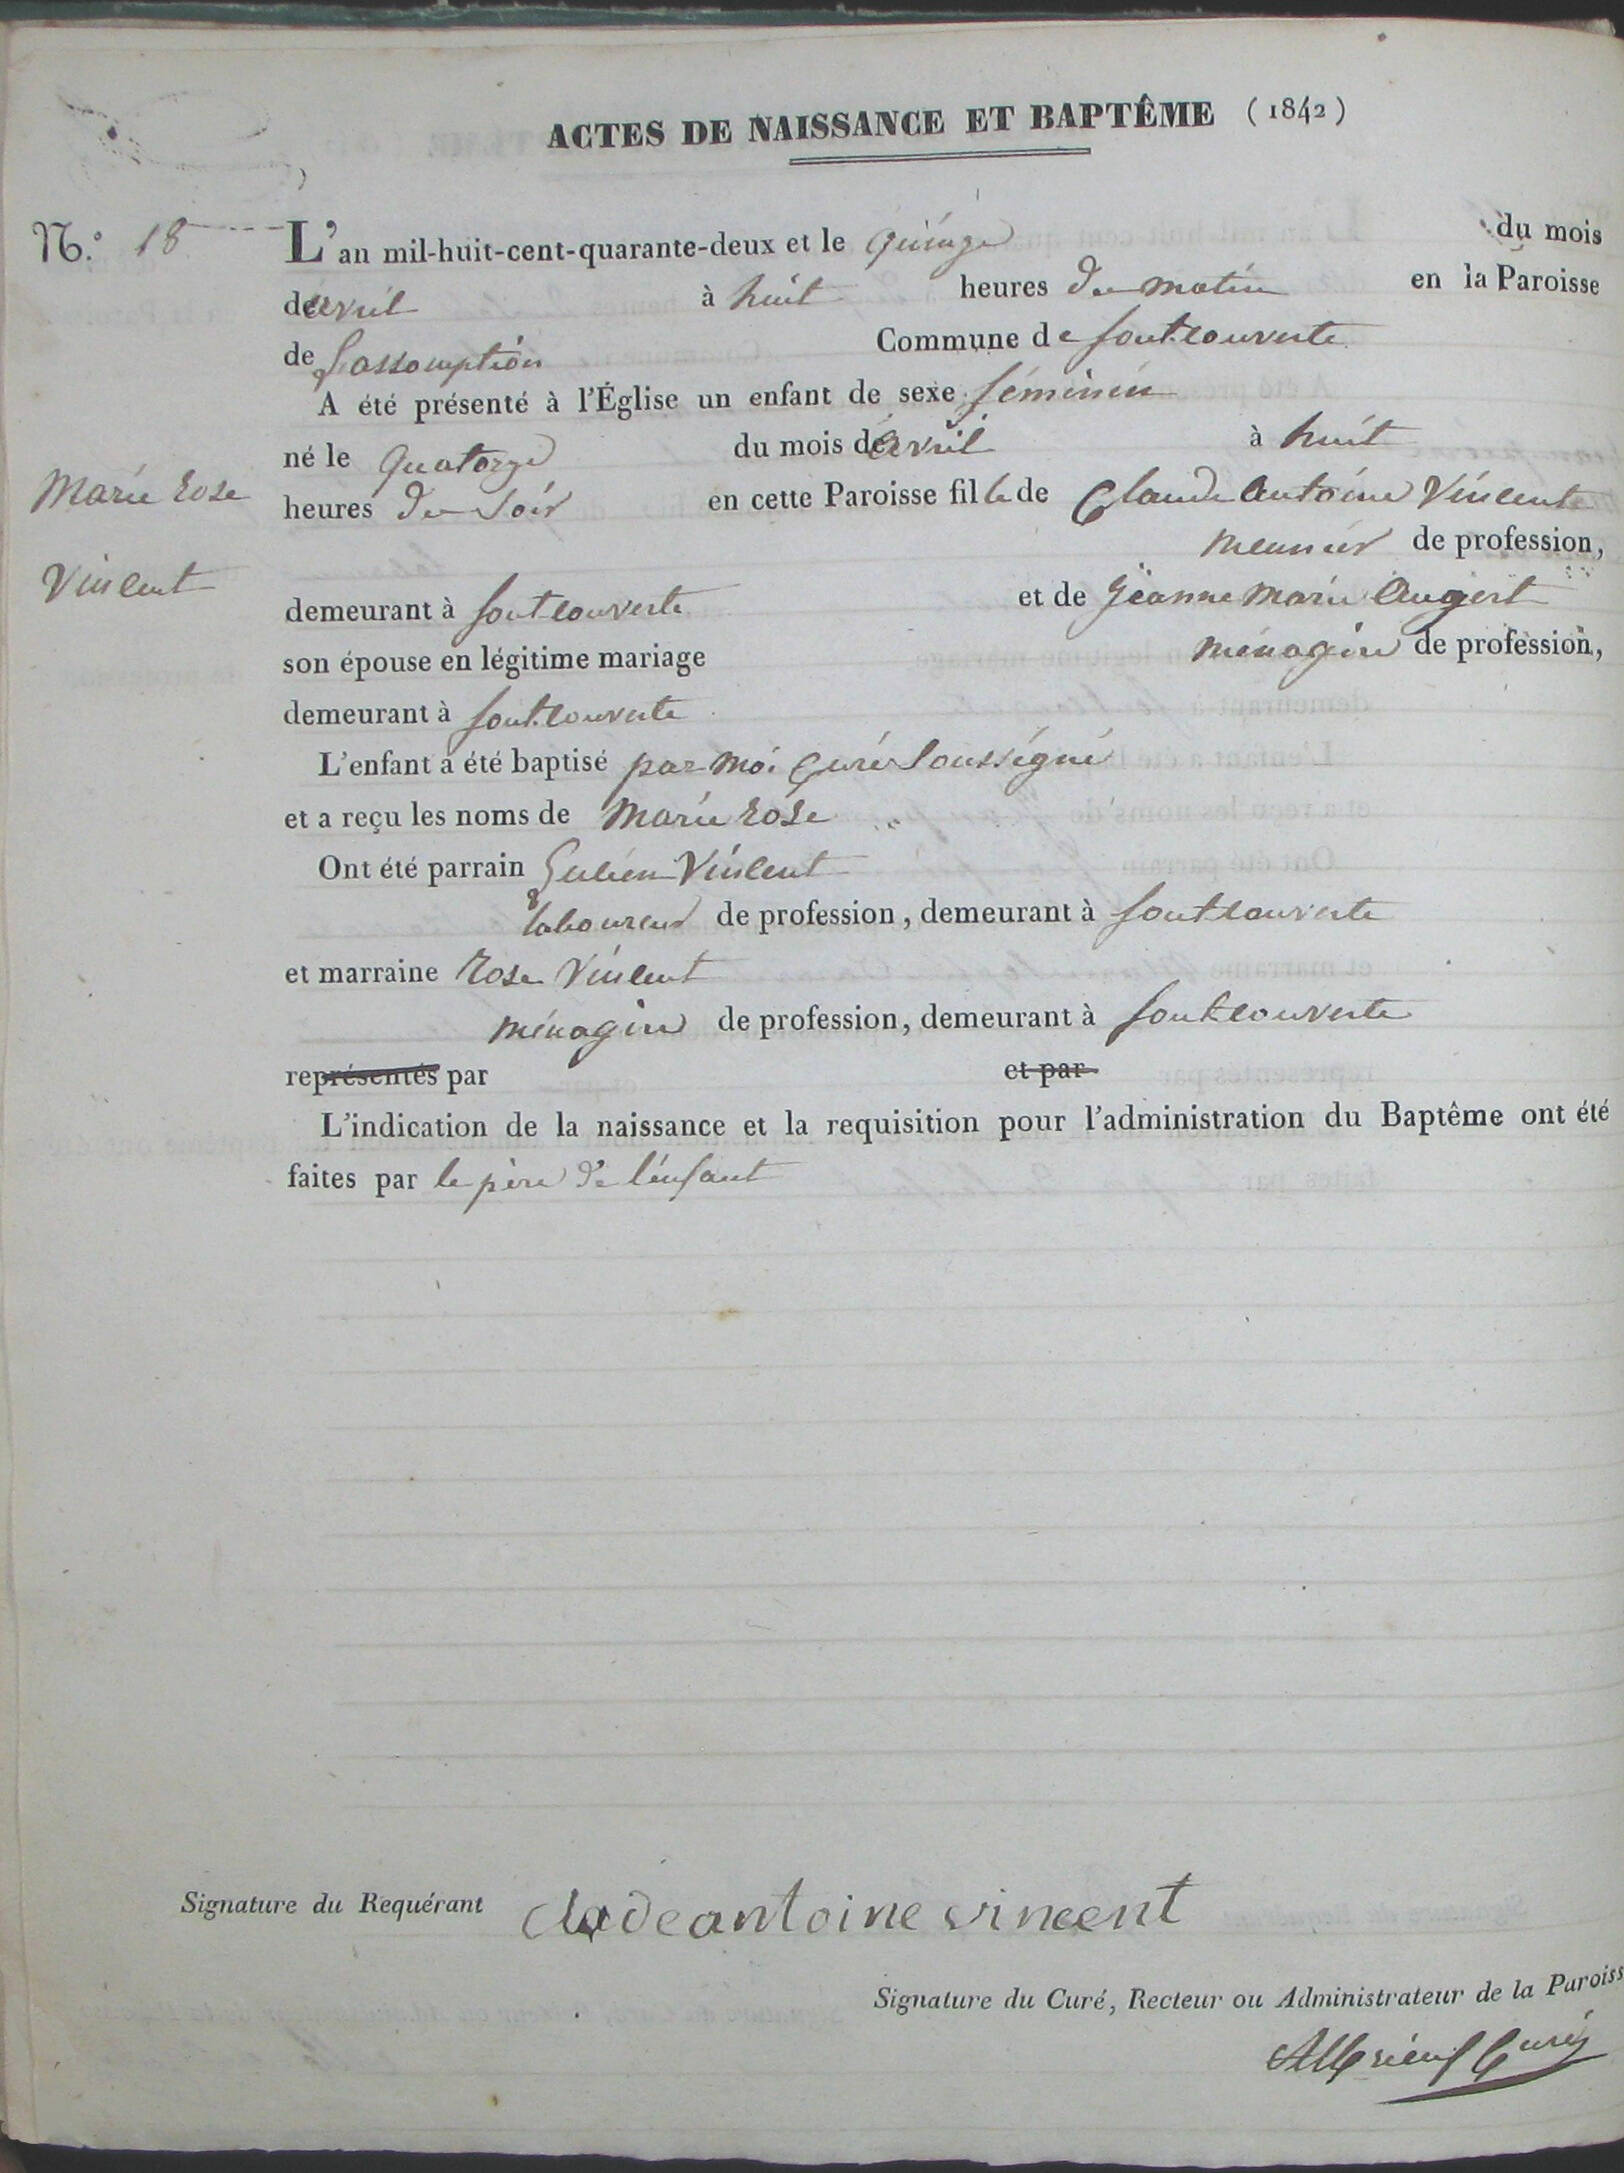 ACTES DE NAISSANCE ET BAPTÊME (1842)
N.º 18
L'an mil-huit-cent-quarante-deux et le quinze du mois
de avril à huit heures du matin en la Paroisse
de Lassomption Commune de fontcouverte
A été présenté à l'Église un enfant de sexe féminin
né le quatorze du mois de avril à huit
Marie Rose
Vincent
heures du soir en cette Paroisse fille de Claude Antoine Vincent
meunier de profession,
demeurant à fontcouverte et de Jeanne Marie Augert
son épouse en légitime mariage ménagère de profession,
demeurant à fontcouverte
L'enfant a été baptisé par moi Curé soussigné
et a reçu les noms de Marie rose
Ont été parrain Julien Vincent
laboureur de profession, demeurant à fontcouverte
et marraine Rose Vincent
ménagère de profession, demeurant à fontcouverte
représentés par et par
L'indication de la naissance et la requisition pour l'administration du Baptême ont été
faites par le père de l'enfant
Signature du Requérant cladeantoine vincent
Signature du Curé, Recteur ou Administrateur de la Paroiss
Curé